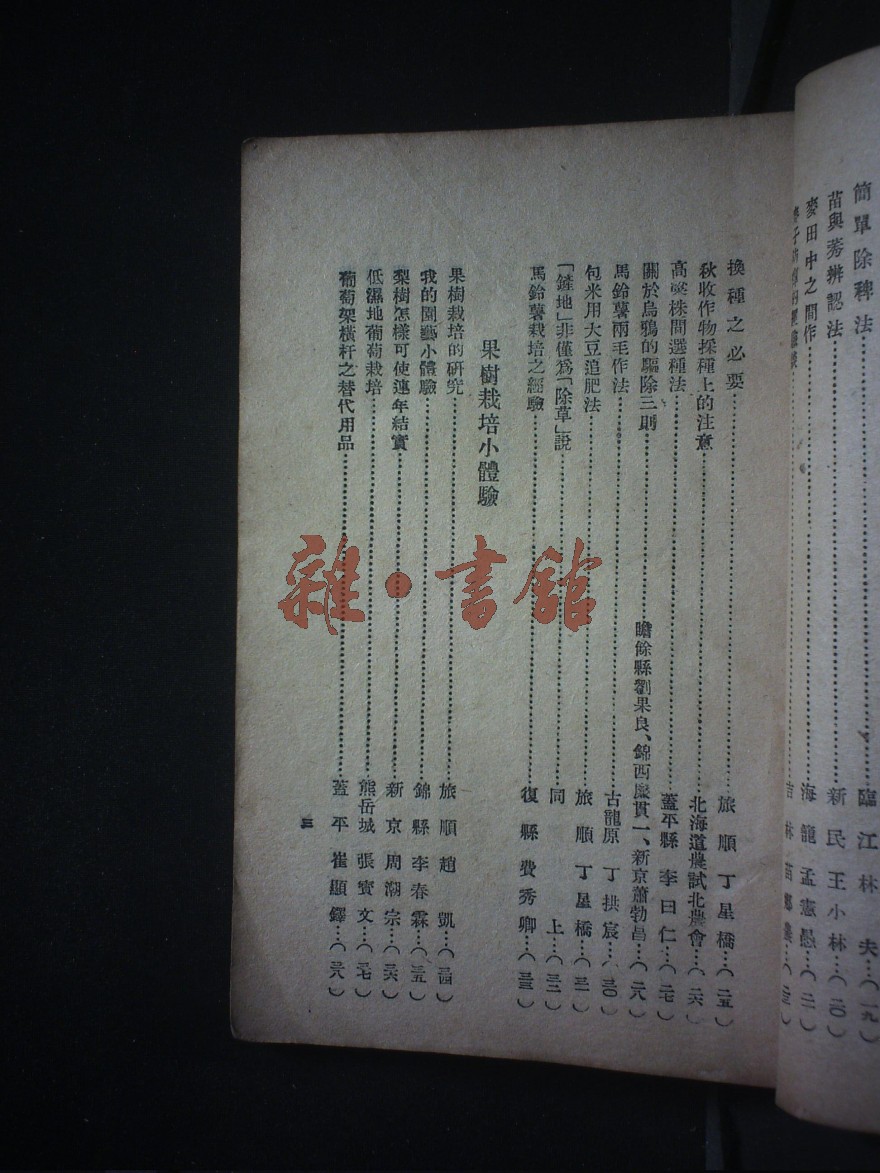 簡單除稗法……臨江林夫…(一九)
苗與莠辨認法……新民王小林…(二〇)
麥田中之間作……海龍孟憲愚…(二一)
換種之必要……旅順丁星橋…(二五)
秋收作物採種上的注意……北海道農試北農會…(二六)
高粱株間選種法……蓋平縣李日仁…(二七)
關於烏鴉的驅除三則……瞻餘縣劉果良、錦西龐貫一、新京蕭勃昌…(二八)
馬鈴薯兩毛作法……古龍原丁拱宸…(三〇)
包米用大豆追肥法……旅順丁星橋…(三一)
「鏟地」非僅爲「除草」說……同上…(三二)
馬鈴薯栽培之經驗……復縣費秀卿…(三三)
果樹栽培小體驗
果樹栽培的研究……旅順趙凱…(三四)
我的園藝小體驗……錦縣李春霖…(三五)
梨樹怎樣可使連年結實……新京周潮宗…(三六)
低濕地葡萄栽培……熊岳城張賓文…(三七)
葡萄架橫杆之替代用品……蓋平崔顯鐸…(三八)
三
雜·書館